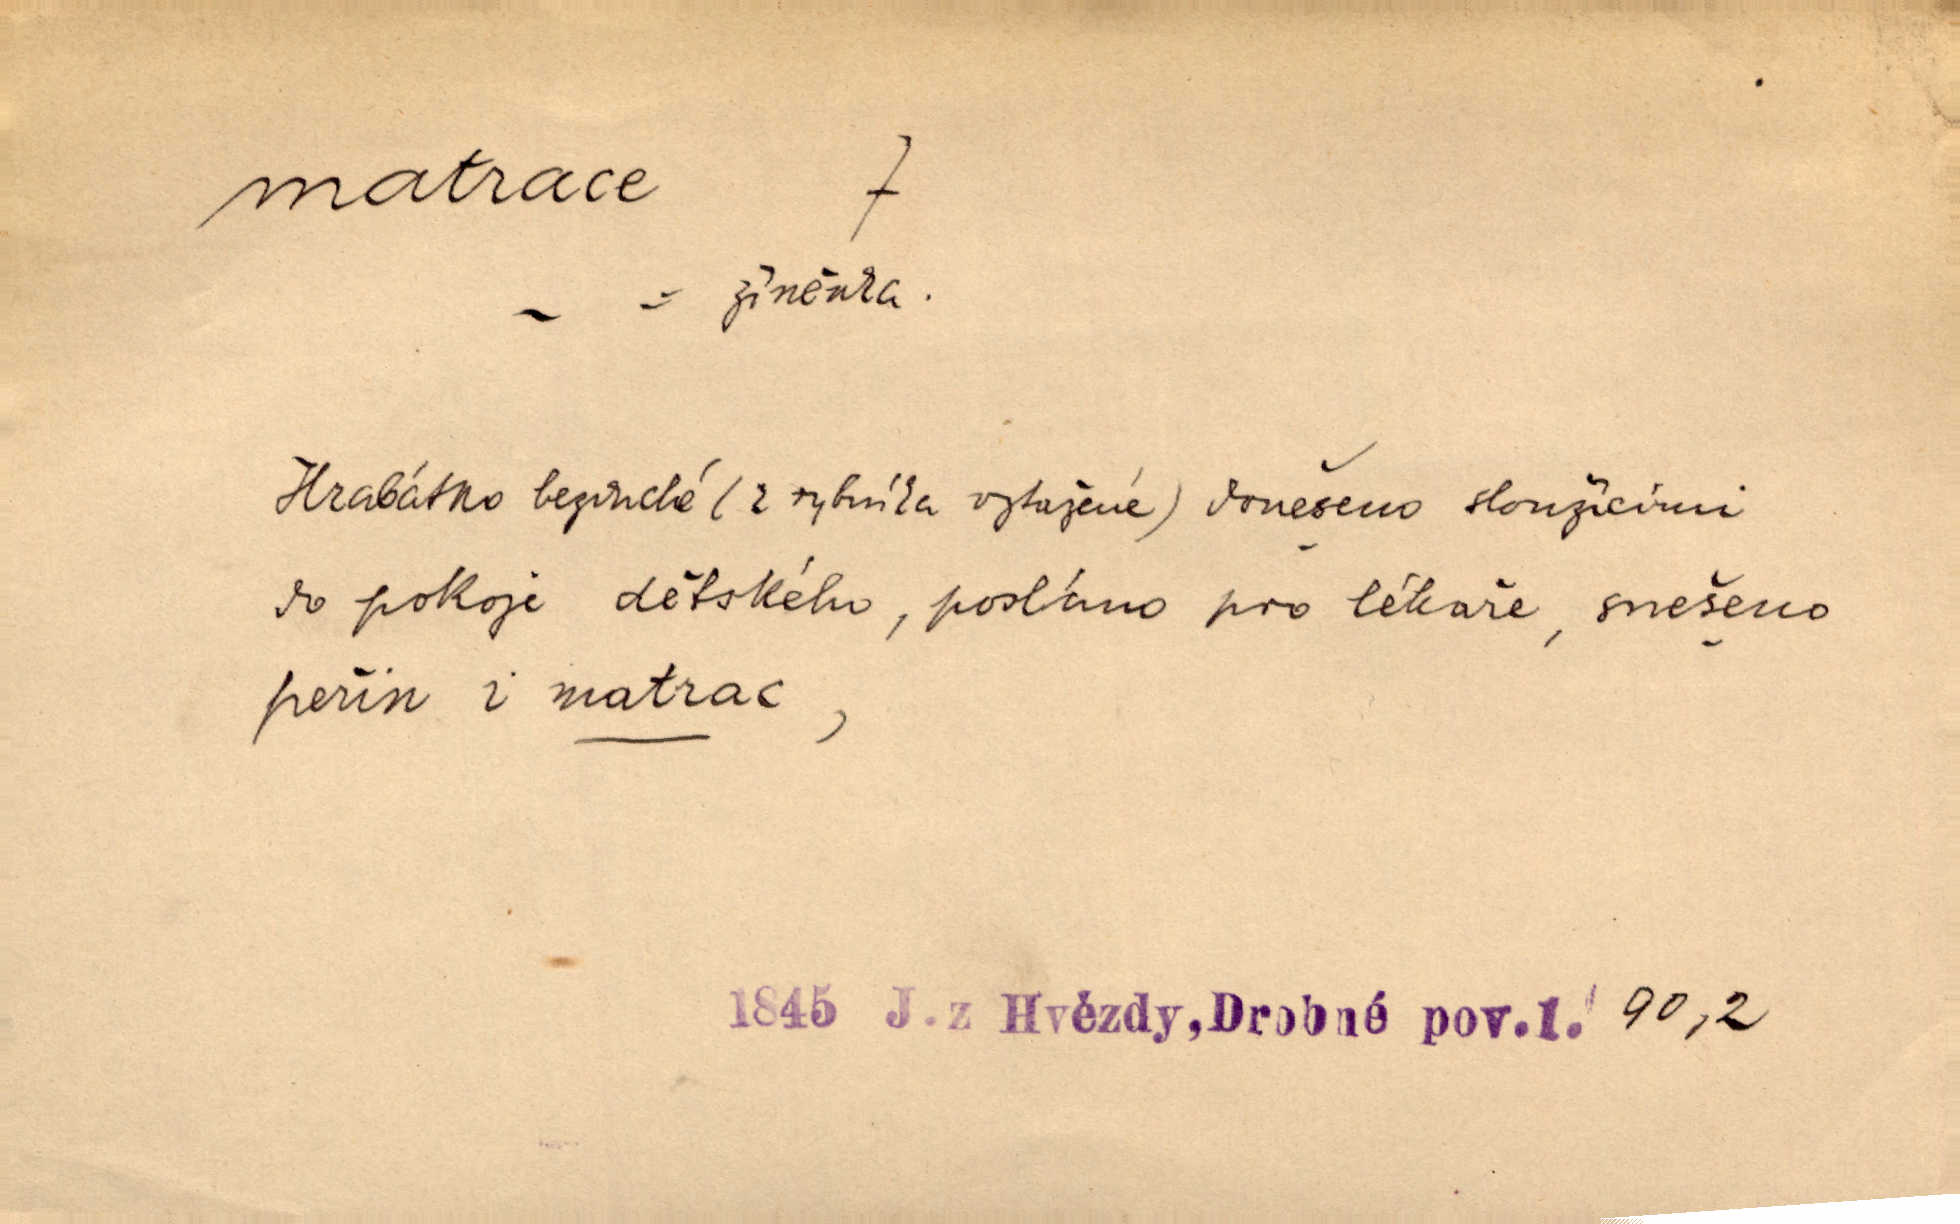 matrace f
~ = žíněnka.
Hrabátko bezduché (z rybníka vytažené) doneşeno sloužícími
do pokoje dětského, posláno pro lékaře, snešeno
peřin i matrac,
1845 J. z Hvězdy, Drobné pov.1. 90,2